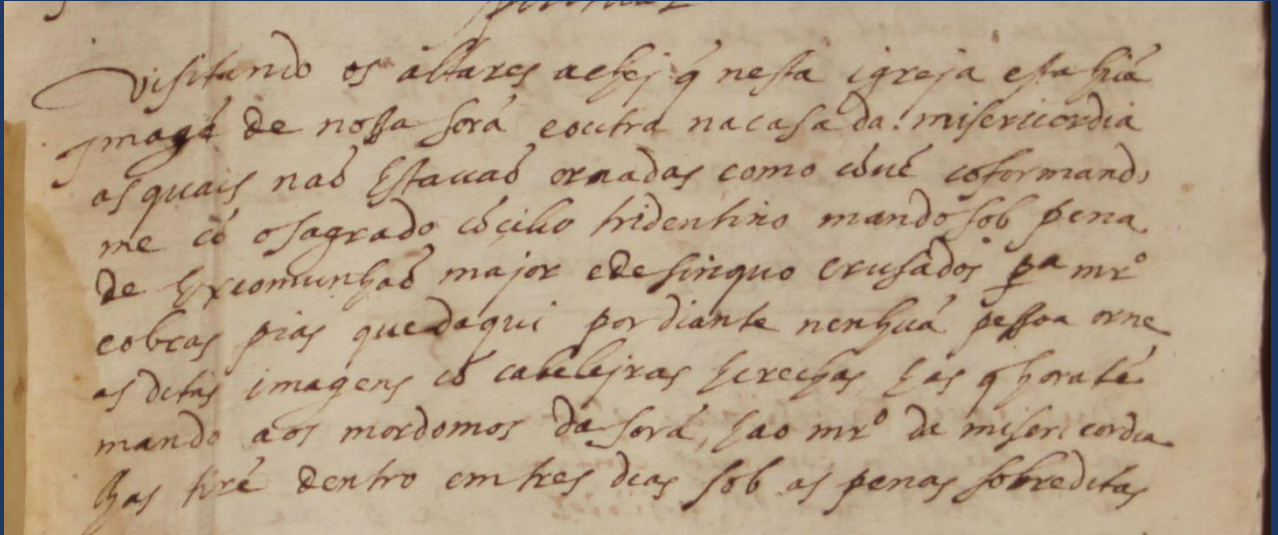 Visitando os altares achej q̃ nesta igreja esta hũa
Imagẽ de nossa sorã e outra na casa da misericordia
as quais naõ Estauaõ ornadas como cõuẽ cõformando
me cõ o sagrado cõcilio tridentino mando sob pena
de Excomunhaõ major e de sinquo crusados pª mrº
e obras pias que daqui por diante nenhũa pessoa orne
as ditas imagens cõ cabelejras has q horatẽ
mando aos mordomos da sorã, hao mrº da misericordia
has tirẽ dentro em tres dias sob as penas sobreditas